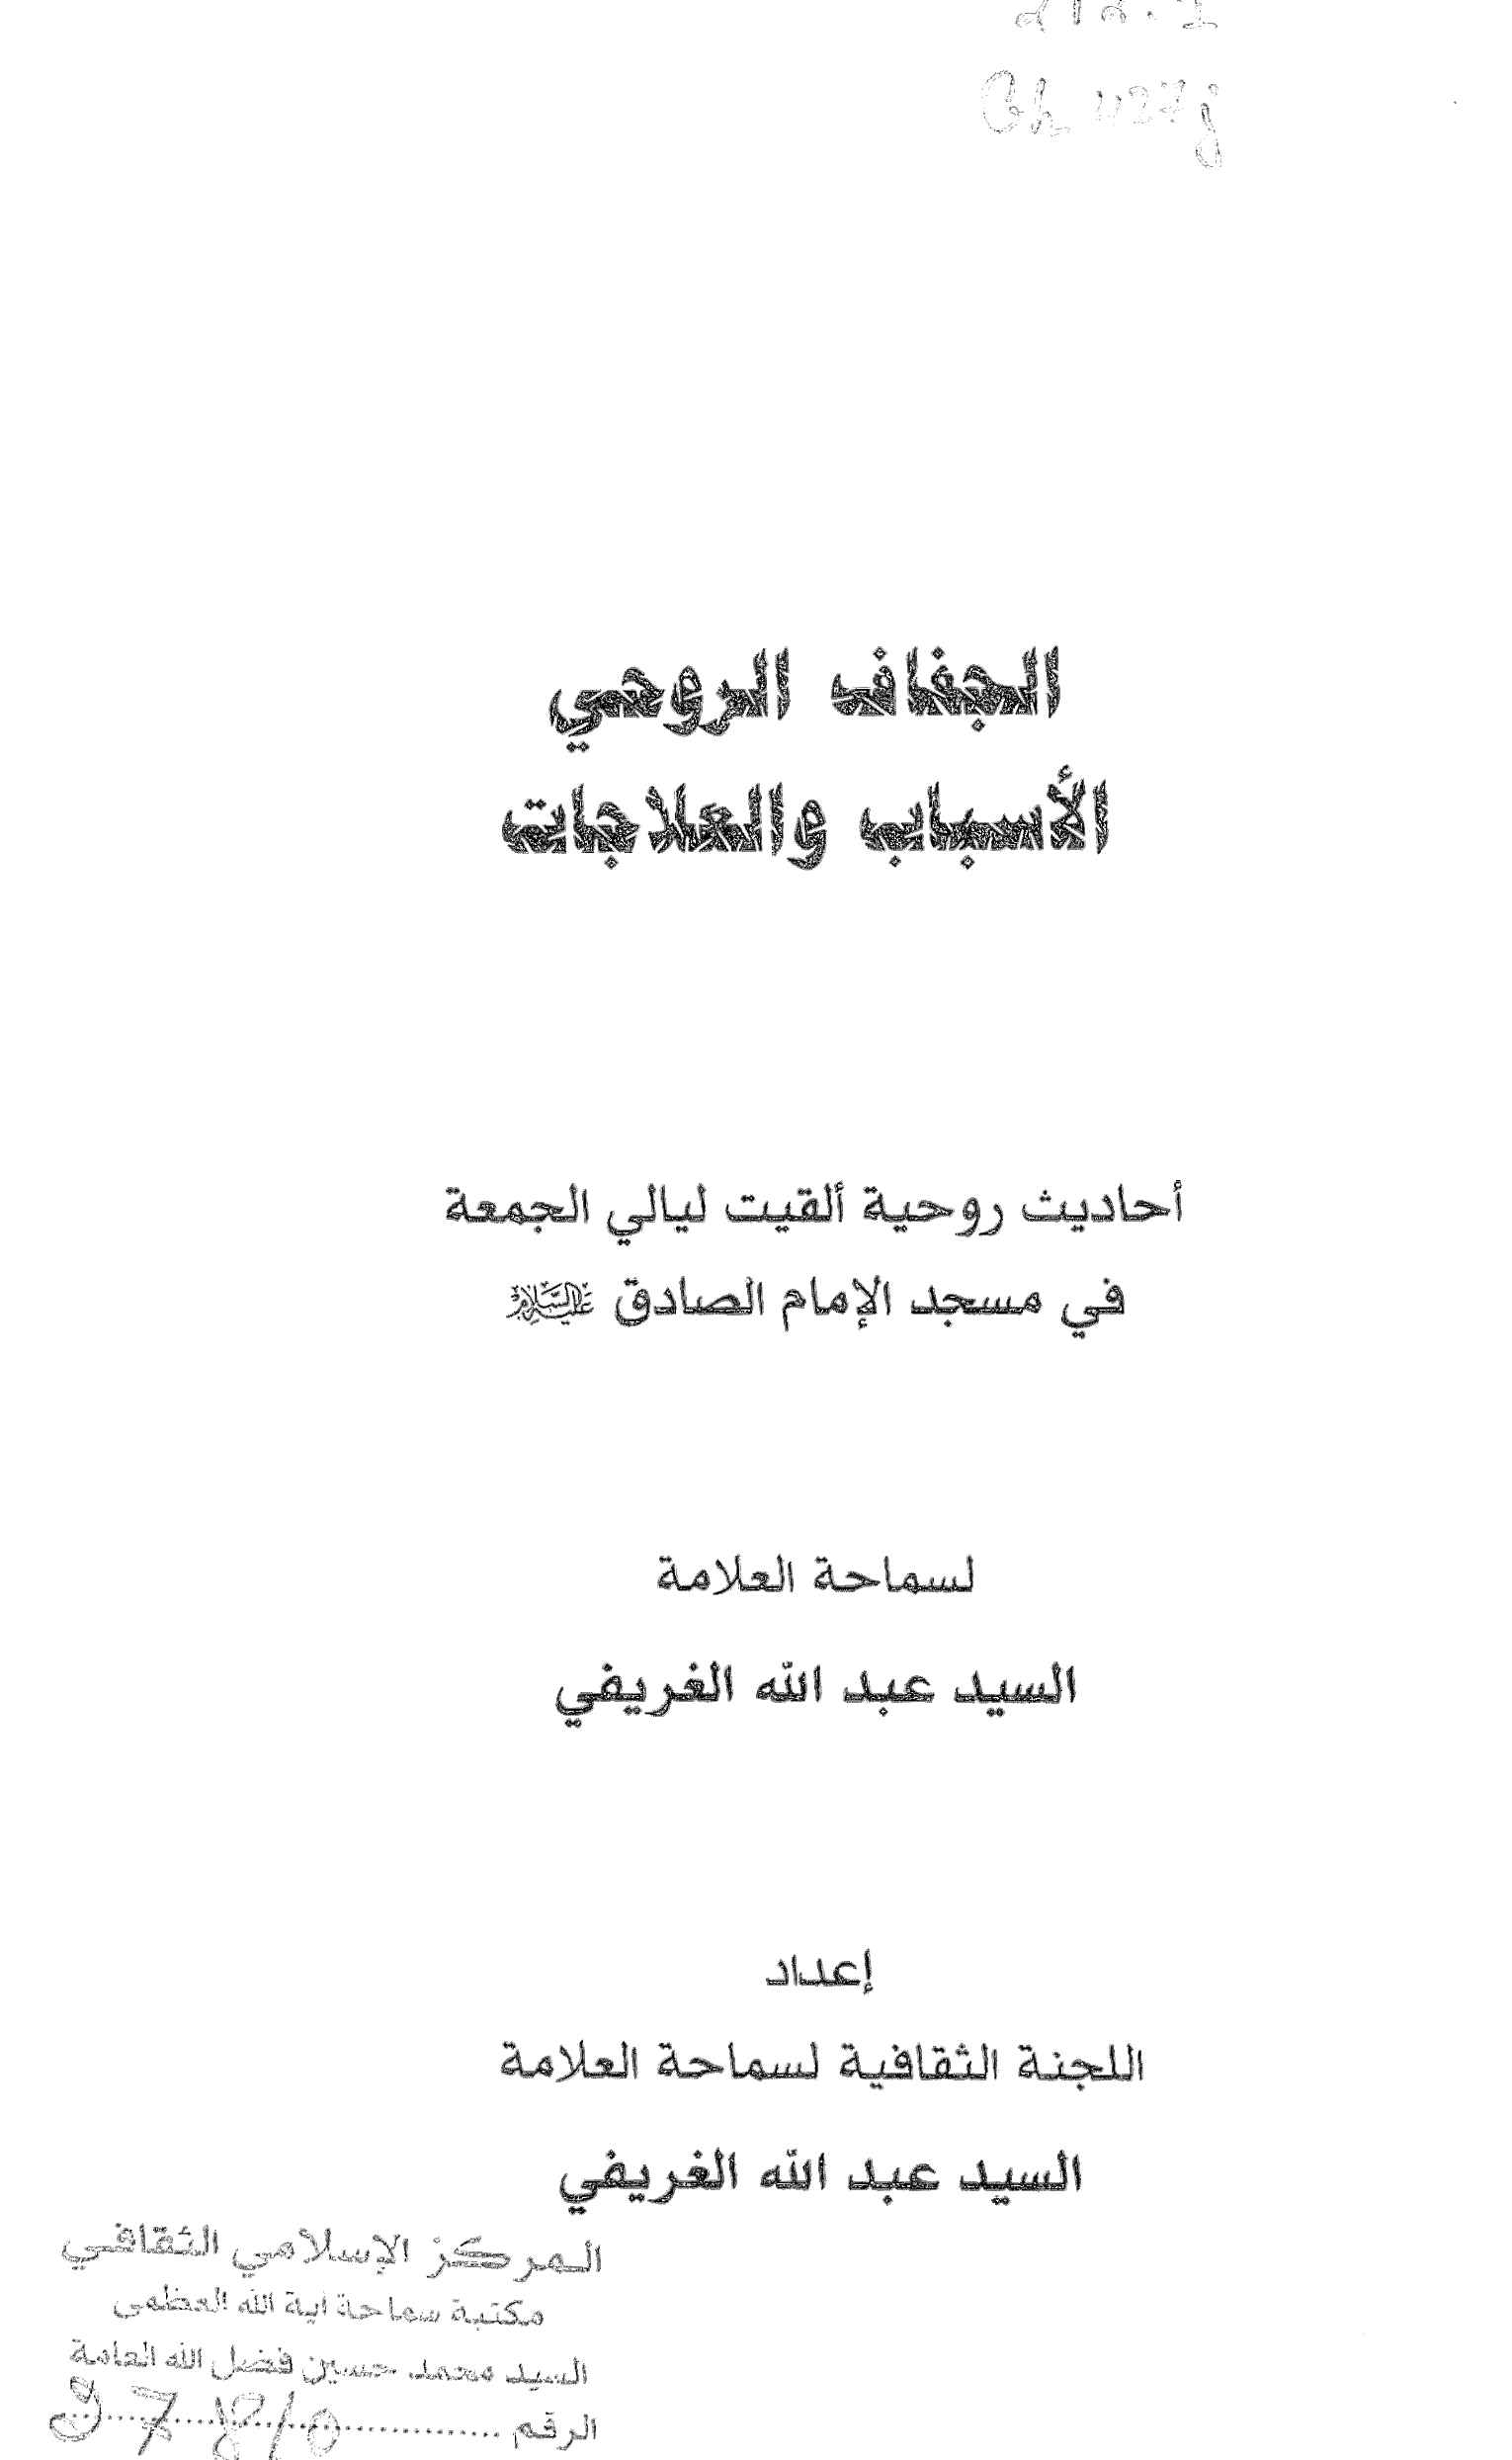 Gh 427j
الجفاف الروحي
الأسباب والعلاجات
أحاديث روحية ألقيت ليالي الجمعة
في مسجد الإمام الصادق عليه السلام
لسماحة العلامة
السيد عبد الله الغريفي
إعداد
اللجنة الثقافية لسماحة العلامة
السيد عبد الله الغريفي
المركز الإسلامي الثقافي
مكتبة سماحة آية الله العظمى
السيد محمد حسين فضل الله العامة
الرقم